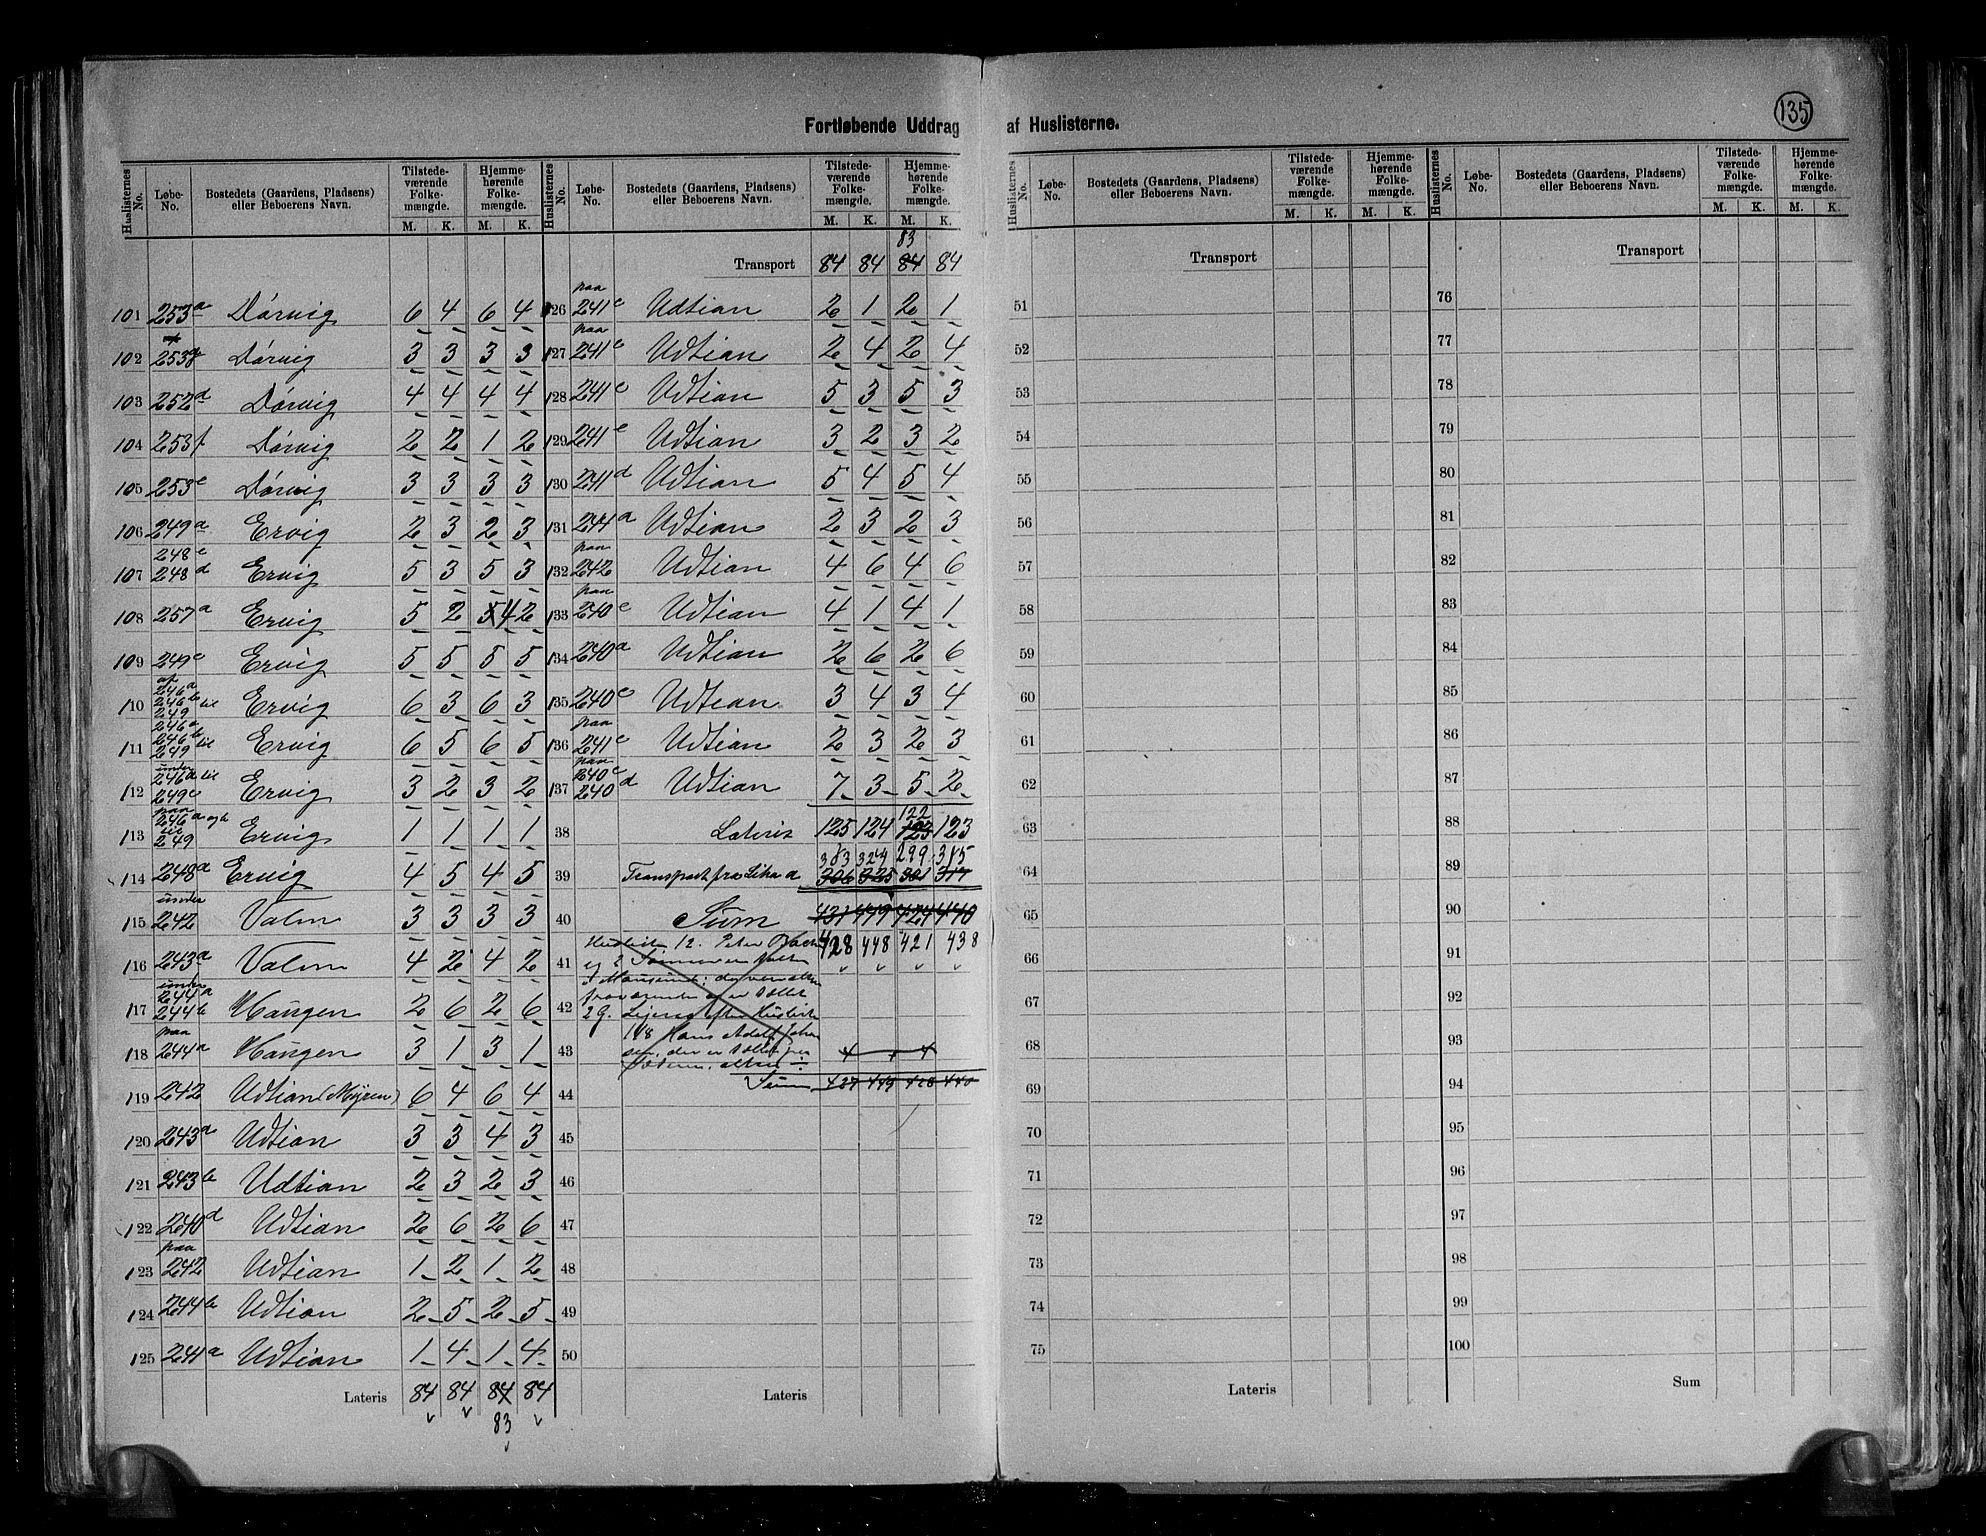 135
Fortløbende Uddrag af Huslisterne.
Huslisternes No. Løbe-No. Bostedets (Gaardens, Pladsens) eller Beboerens Navn. Tilstedeværende Folkemængde. M. K. Hjemmehørende Folkemængde. M. K.
101 253a Dórvig 6 4 6 4
102 253 Dórvig 3 3 3 3
103 252d Dórvig 4 4 4 4
104 253f Dórvig 2 2 1 2
105 253e Dórvig 3 3 3 3
106 249a Ervig 2 3 2 3
107 248e 248d Ervig 5 3 5 3
108 257a Ervig 5 2 5 4 2
109 249c Ervig 5 5 5 5
110 af 246a 246b til 249 Ervig 6 3 6 3
111 246a 246b til 249 Ervig 6 5 6 5
112 under 246a til 249c Ervig 3 2 3 2
113 paa 246a og b til 249 Ervig 1 1 1 1
114 248a Ervig 4 5 4 5
115 under 242 Valen 3 3 3 3
116 243a Valen 4 2 4 2
117 under 244a 244b Haugen 2 6 2 6
118 paa 244a Haugen 3 1 3 1
119 242 Udtian (Myren) 6 4 6 4
120 243a Udtian 3 3 4 3
121 243b Udtian 2 3 2 3
122 240d Udtian 2 6 2 6
123 paa 242 Udtian 1 2 1 2
124 244b Udtian 2 5 2 5
125 241a Udtian 1 4 1 4
Lateris 84 84 84 84
83
Huslisternes No. Løbe-No. Bostedets (Gaardens, Pladsens) eller Beboerens Navn. Tilstedeværende Folkemængde. M. K. Hjemmehørende Folkemængde. M. K.
83
Transport 84 84 84 84
126 paa 241c Udtian 2 1 2 1
127 paa 241c Udtian 2 4 2 4
128 241c Udtian 5 3 5 3
129 241e Udtian 3 2 3 2
130 241d Udtian 5 4 5 4
131 244a Udtian 2 3 2 3
132 paa 242 Udtian 4 6 4 6
133 paa 240c Udtian 4 1 4 1
134 240a Udtian 2 6 2 6
135 240c Udtian 3 4 3 4
136 paa 241c Udtian 2 3 2 3
137 paa 240c 240d Udtian 7 3 5 2
122
38 Lateris 125 124 123 123
324 299
39 Transport fra Litra a 306 325 301
40 Sum 431 449 424 440
41 Husliste 12. Peter 428 448 421 438
42
118 Hans Adolf
43
44 Sum
45
46
47
48
49
50
Lateris
Huslisternes No. Løbe-No. Bostedets (Gaardens, Pladsens) eller Beboerens Navn. Tilstedeværende Folkemængde. M. K. Hjemmehørende Folkemængde. M. K.
Transport
51
52
53
54
55
56
57
58
59
60
61
62
63
64
65
66
67
68
69
70
71
72
73
74
75
Lateris
Huslisternes No. Løbe-No. Bostedets (Gaardens, Pladsens) eller Beboerens Navn. Tilstedeværende Folkemængde. M. K. Hjemmehørende Folkemængde. M. K.
Transport
76
77
78
79
80
81
82
83
84
85
86
87
88
89
90
91
92
93
94
95
96
97
98
99
100
Sum